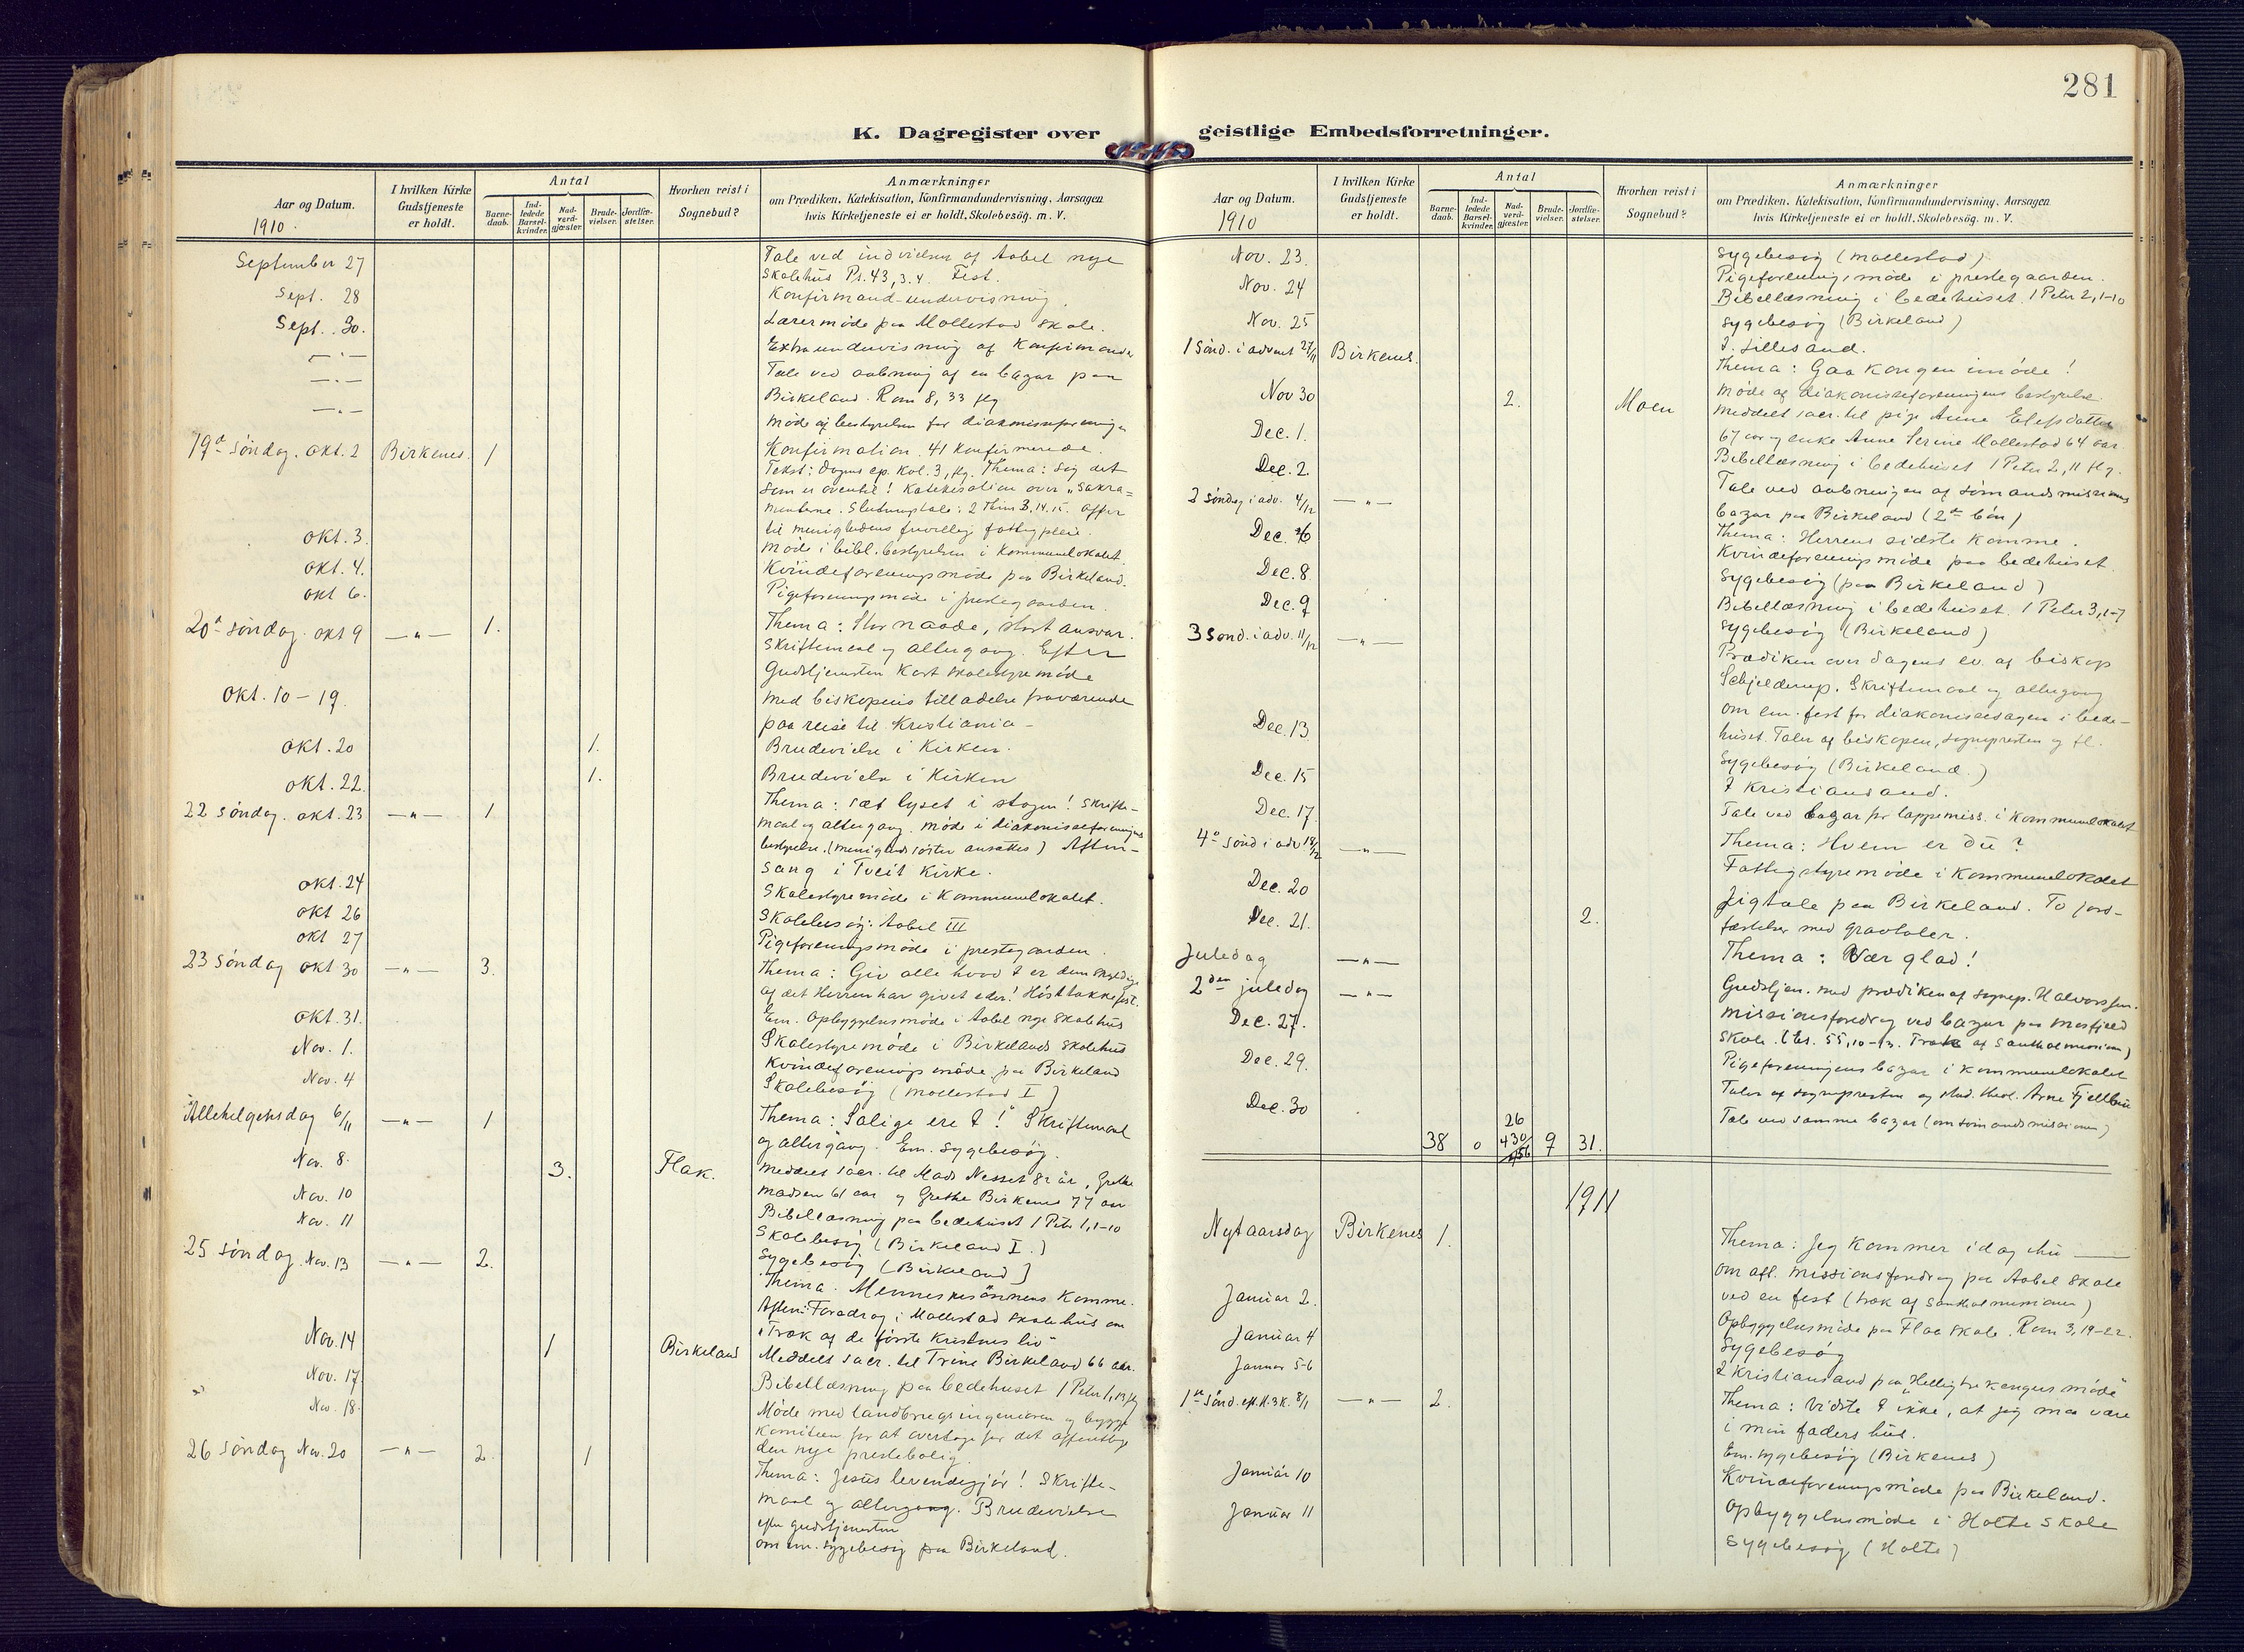 281
K. Dagregister over geistlige Embedsforretninger.
Aar og Datum.
1910.
I hvilken Kirke Gudstjeneste er holdt.
Antal
Barne-daab.
Ind-ledede Barsel-kvinder.
Nad-verd-gjæster.
Brude-vielser.
Jordfæ-stelser.
Hvorhen reist i Sognebud?
Anmærkninger
om Prædiken, Katekisation, Konfirmandundervisning, Aarsagen
hvis Kirketjeneste ei er holdt, Skolebesög. m. V.
September 27 Tale ved indvielsen af Aabel nye
Skolehus Ps. 43, 3.4. Fest.
Sept. 28 Konfirmand-undervisning.
Sept. 30. Lærermöde paa Mollestad skole.
— " — Extraundervisning af Konfirmander
— " — Tale ved aabning af en bazar paa
Birkeland. Rom 8, 33 flg
— " — Möde af bestyrelsen for diakonisseforeningen
19de söndag. okt. 2 Birkenes. 1 Konfirmation. 41 Konfirmerede.
Tekst: Dagens ep. Kol. 3, flg. Thema: Søg det
som er oventil! Katekisation over "Sakra=
menterne. Slutningstale: 2 Thim 3, 14.15. Offer
til menighedens frivillig fattigpleie.
okt. 3. Möde i bibl. bestyrelsen i Kommunelokalet.
okt. 4. Kvindeforeningsmöde paa Birkeland.
okt 6. Pigeforeningsmöde i prestegaarden.
20de söndag. okt 9 — " — 1. Thema: Stor naade, stort ansvar.
Skriftemaal og altergang. Efter
Gudstjenesten Kort skolestyremöde
okt. 10 – 19. Med biskopens tilladelse fraværende
paa reise til Kristiania –
okt. 20 1. Brudevielse i Kirken.
okt. 22. 1. Brudevielse i Kirken
22 söndag. okt. 23 — " — 1 Thema: Sæt lyset i stagen! Skrifte-
maal og altergang. Möde i diakonisseforeningens
bestyrelse. (Menighedssöster ansættes) Aften-
sang i Tveit Kirke.
okt. 24 Skolestyremöde i Kommunelokalet.
okt 26 Skolebesøg: Aabel III
okt 27 Pigeforeningsmöde i prestegaarden.
23 söndag okt 30 — " — 3. Thema: Giv alle hvad I er dem skyldige
af det Herren har givet eder! Hösttakkefest.
Em. Opbyggelsesmöde i Aabel nye skolehus
okt. 31. Skolestyremöde i Birkelands skolehus
Nov. 1. Kvindeforeningsmöde paa Birkeland
Nov. 4 Skolebesög (Mollestad I)
Allehelgensdag 6/11 — " — 1 Thema: Salige ere I! Skriftemaal
og altergang. Em. Sygebesög.
Nov. 8. 3. Flak. Meddelt sacr. til Mads Nesset 82 år, Grethe
Madsen 61 aar og Grethe Birkenes 77 aar
Nov. 10 Bibellæsning paa bedehuset 1 Petr 1, 1–10
Nov. 11 Skolebesög (Birkeland I.)
Sygebesög (Birkeland)
25 söndag. Nov. 13 — " — 2. Thema. Menneskesönnens Komme.
Aften: Foredrag i Mollestad skolehus om
"Træk af de förste Kristnes liv"
Nov. 14 1 Birkeland Meddelt sacr. til Trine Birkeland 66 aar.
Nov. 17. Bibellæsning paa bedehuset 1 Peter 1, 13 flg
Nov. 18. Möde med landbrugsingeniören og bygge
Komiteen for at overtage for det offentlige
den nye prestebolig.
26 söndag Nov. 20 — " — 2. 1 Thema: Jesus levendegjör! Skrifte-
maal og altergang. Brudevielse
efter gudstjenesten
om em. sygebesög paa Birkeland.
Aar og Datum.
1910
I hvilken Kirke Gudstjeneste er holdt.
Antal
Barne-daab.
Ind-ledede Barsel-kvinder.
Nad-verd-gjæster.
Brude-vielser.
Jordfæ-stelser.
Hvorhen reist i Sognebud?
Anmærkninger
om Prædiken, Katekisation, Konfirmandundervisning, Aarsagen
hvis Kirketjeneste ei er holdt, Skolebesög. m. V.
Nov. 23. Sygebesög (Mollestad)
Nov. 24 Pigeforeningsmöde i prestegaarden.
Bibellæsning i bedehuset. 1 Peter 2, 1–10
Nov. 25 Sygebesög (Birkeland)
I Lillesand.
1 Sönd. i advent 27/11 Birkenes. Thema: Gaa Kongen imöde!
Möde af diakonisseforeningens bestyrelse.
Nov 30 2. Moen Meddelt sacr. til pige Anne Elefsdatter
67 aar og enke Anne Serine Mollestad 64 aar
Dec. 1. Bibellæsning i bedehuset 1 Peter 2, 11 flg.
Dec. 2 Tale ved aabningen af sömandsmissionens
bazar paa Birkeland (2den bön)
2 söndag i adv. 4/12 — " — Thema: Herrens sidste Komme.
Dec. 6 Kvindeforeningsmöde paa bedehuset.
Sygebesög (paa Birkeland)
Dec. 8. Bibellæsning i bedehuset. 1 Peter 3, 1–7
Dec. 9 Sygebesög (Birkeland)
3 sönd. i adv. 11/12 — " — Prædiken over dagens ev. af biskop
Schjelderup. Skriftemaal og altergang
om em. fest for diakonissesagen i bede-
huset. Taler af biskopen, sognepresten og fl.
Dec. 13 Sygebesög (Birkeland.)
Dec. 15 I Kristiansand.
Dec. 17. Tale ved bazar for lappemiss. i Kommunelokalet
4de sönd i adv 18/12 — " — Thema: Hvem er du?
Dec. 20 Fattigstyremöde i Kommunelokalet
Dec. 21. 2. Ligtale paa Birkeland. To jord-
fæstelser med gravtaler.
Juledag — " — Thema: Vær glad!
2den juledag — " — Gudstjen. med prædiken af sognep. Halvorssen.
Dec. 27. Missionsforedrag ved bazar paa Mosfjeld
skole. (Es. 55, 10–13. Træk af Santhalmissionen)
Dec. 29. Pigeforeningens bazar i Kommunelokalet
Taler af sognepresten og stud. theol. Arne Fjellbu
Dec. 30 Tale ved samme bazar (om sömandsmissionen)
26
38 0 430 9 31.
456
1911
Nytaarsdag Birkenes 1. Thema: Jeg kommer idag thi —
om aft. missionsforedrag paa Aabel skole
ved en fest (træk af Santhalmissionen)
Januar 2. Opbyggelsesmöde paa Flaa skole. Rom 3, 19–22.
Januar 4 Sygebesög
Januar 5-6 I Kristiansand paa "Helligtrekongersmöde"
1ste Sönd. eft. H.3K. 8/1 — " — 2. Thema: Vidste I ikke, at jeg maa være
i min faders hus.
Em. sygebesög (Birkenes)
Januar 10 Kvindeforeningsmöde paa Birkeland.
Januar 11 Opbyggelsesmöde i Holte skole
Sygebesög (Holte)